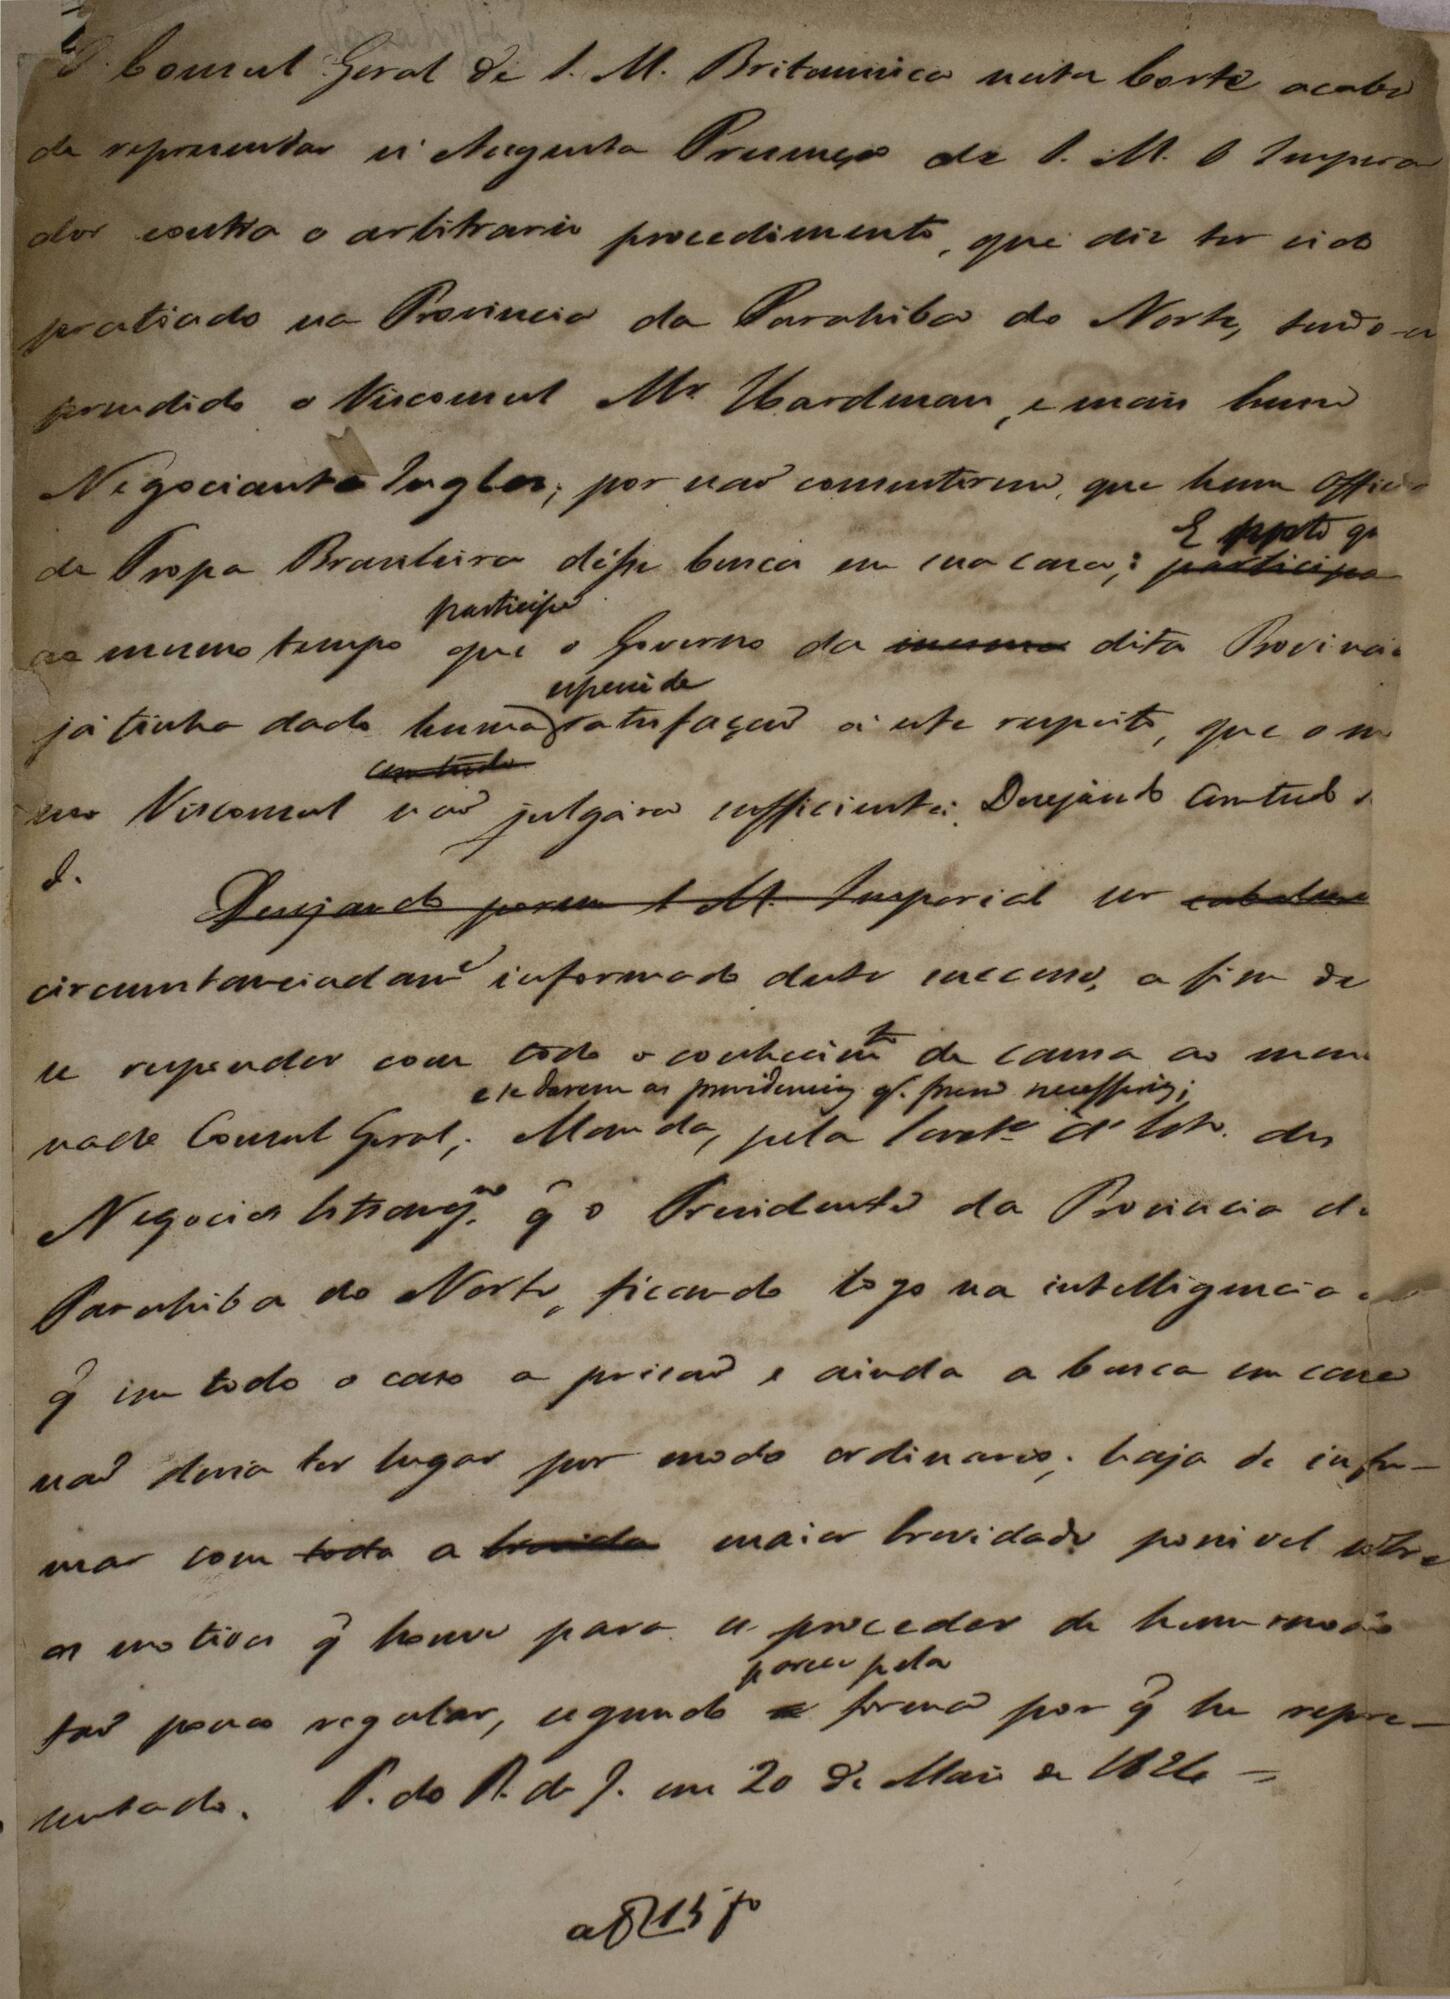 O Consul Geral de S. M. Britannica nesta Corte acaba
de representar á Augusta Presença de S. M. O Impera
dor contra o arbitrario procedimento, que diz ter sido
praticado na Provincia da Parahiba do Norte, tendo-se
prendido o Visconsul Mr Hardman, e mais hum
Negociante Inglez, por naõ consentirem, que hum Offici
E posto q
de Tropa Brasileira désse busca em sua casa; participa
participe
ao mesmo tempo que o Governo da mesma dita Provinci
espécie de
já tinha dado huma satisfaçaõ a este respeito, que o m
com tudo
smo Visconsul naõ julgára sufficiente; Desejando Comtudo
S.
Desejando porem S. M. Imperial ser
circunstanciadame informado deste successo, a fim de
se responder com todo o conhecimto de causa ao men
e se darem as providencias q. forem necessarias;
nado Consul Geral; Manda, pela Secreta d'Esto. dos
Negocios Estrangros q̃ o Presidente da Provincia da
Parahiba do Norte, ficando logo na intelligencia
q̃ em todo o caso a prisaõ e ainda a busca em casa
naõ devia ter lugar por modo ordinario; haja de infor-
mar com toda a brevida maior brevidade possivel sobre
os motivos q̃ houve para se proceder de hum modo
porem pela
taõ pouco regular, segundo a forma por q̃ he repre-
sentado. P. do R. de J. em 20 de Maio de 1826 =